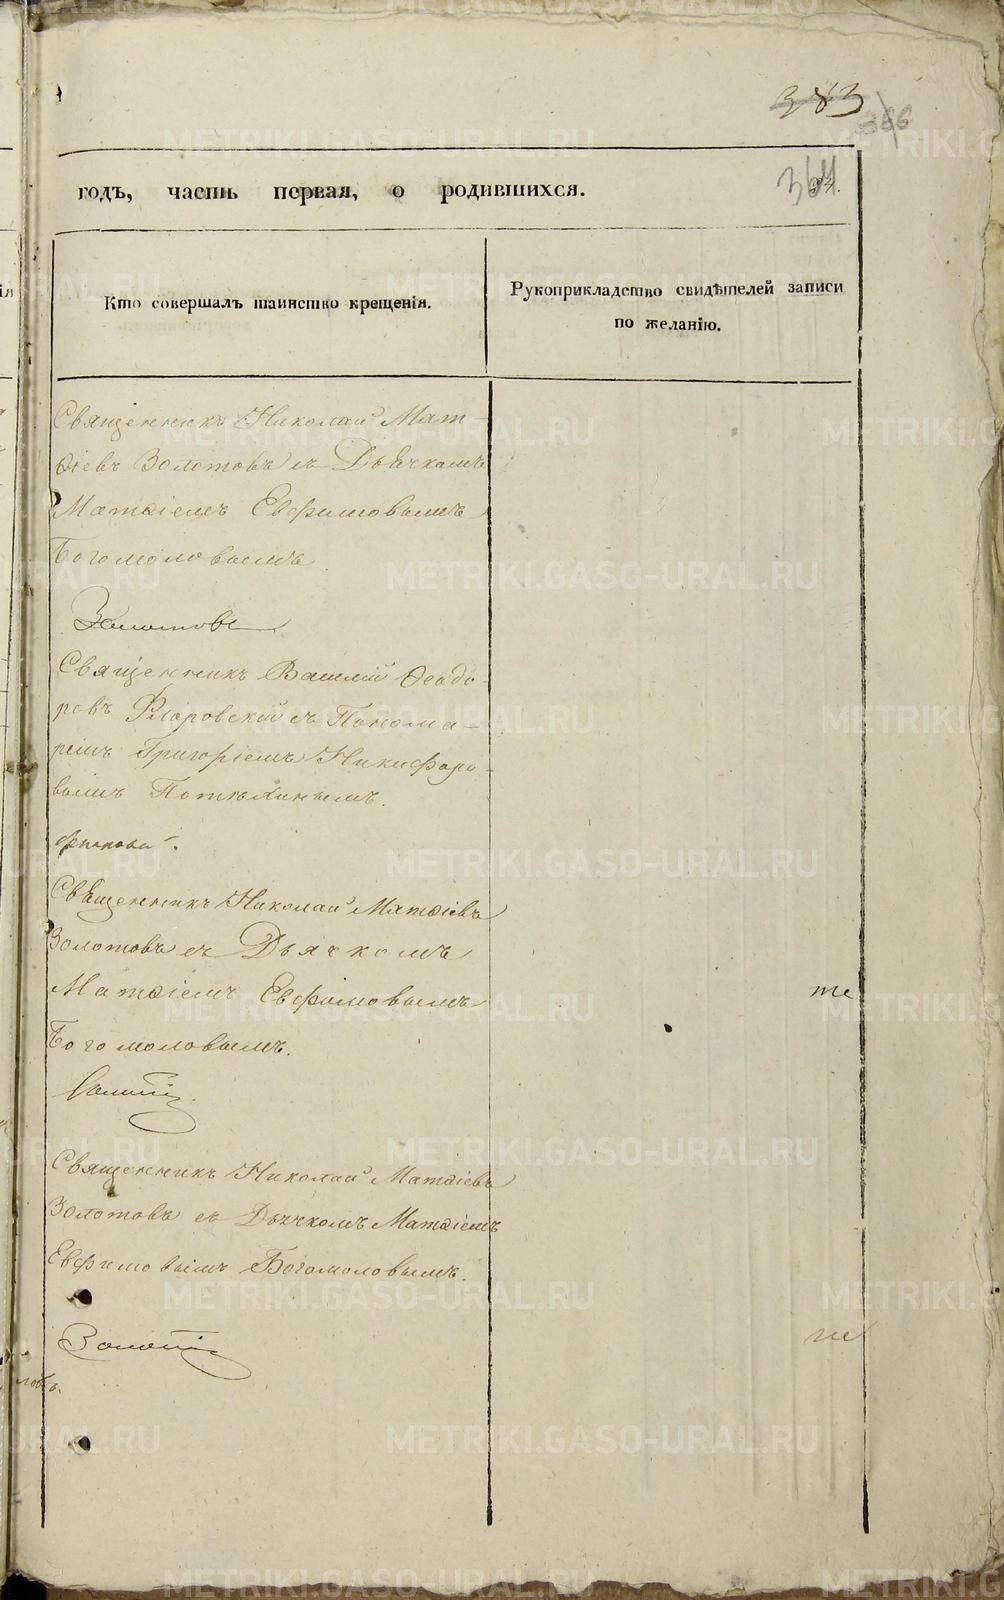 383
366
364
годъ, часть первая, о родившихся.
Кто совершалъ таинство крещенія.
Рукоприкладство свидѣтелей записи
по желанію.
Священникъ Николай Мат-
ѳіевъ Золотовъ съ Дьячкомъ
Матѳіемъ Евфимовымъ
Богомоловымъ
Золотовъ
Священникъ Василій Ѳеодо-
ровъ Флоровскій съ Понома-
ремъ Григоріемъ Никифоро-
вымъ Потѣхинымъ.
Священникъ Николай Матѳіевъ
Золотовъ съ Дьячкомъ
Матѳіемъ Евфимовымъ
те
Богомоловымъ.
Священникъ Николай Матѳіевъ
Золотовъ съ Дьячкомъ Матѳіемъ
Евфимовымъ Богомоловымъ.
METRIKI.GASO-URAL.RU